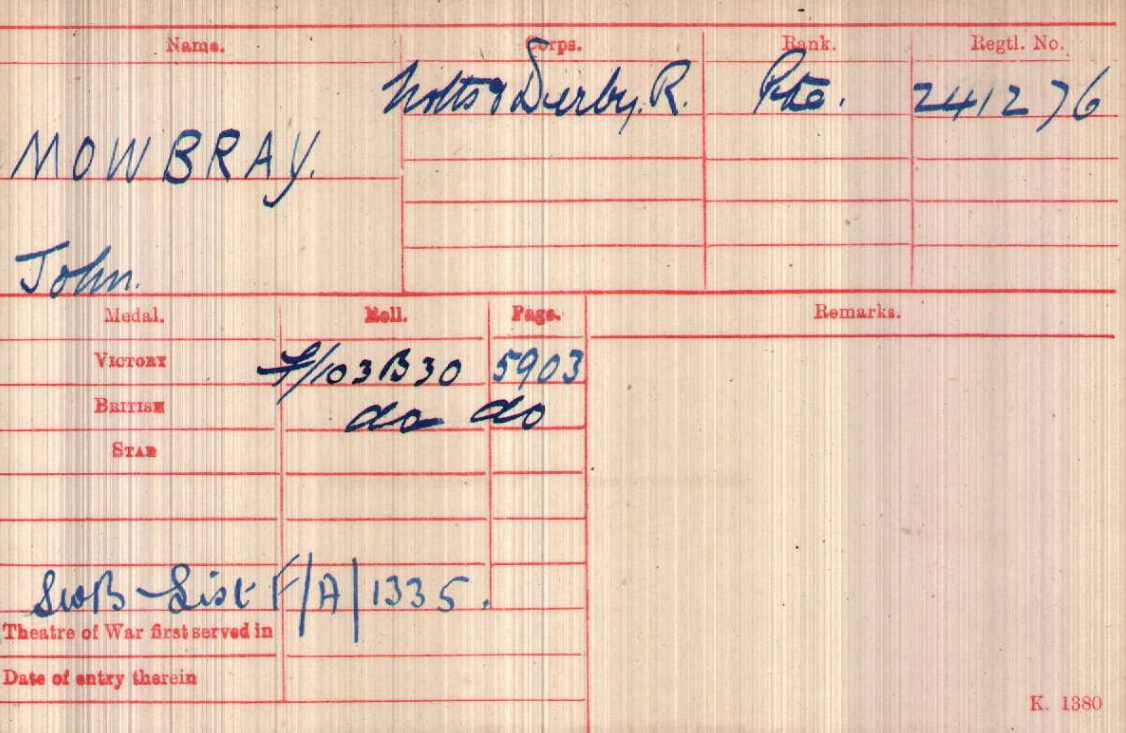 Name. Corps. Rank. Regtl. No.
Notts & Derby. R. Pte. 241276
MOWBRAY.
John.
Medal. Roll. Page. Remarks.
VICTORY F/103B30 5903
BRITISH do do
STAR
SWB List F/A/1335.
Theatre of War first served in
Date of entry therein
K. 1380